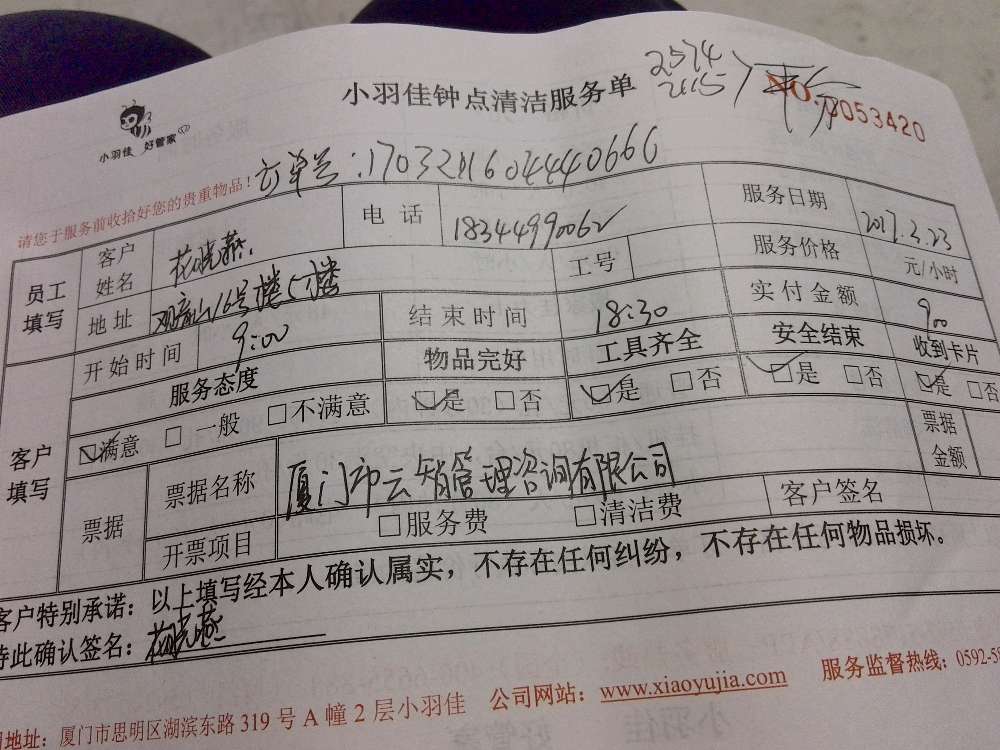 小羽佳 好管家
小羽佳钟点清洁服务单
2574
2115
NO. 0053420
请您于服务前收拾好您的贵重物品!
订单号:17032116044440666
员工填写 客户姓名 花晓燕 电话 18344990062 服务日期 2017.3.23
地址 观音山16号楼5楼 工号 服务价格 元/小时
开始时间 9:00 结束时间 18:30 实付金额 900
客户填写 服务态度 物品完好 工具齐全 安全结束 收到卡片
☑满意 □一般 □不满意 ☑是 □否 ☑是 □否 ☑是 □否 ☑是 □否
票据 票据名称 厦门市云智管理咨询有限公司 票据金额
开票项目 □服务费 □清洁费 客户签名
客户特别承诺:以上填写经本人确认属实,不存在任何纠纷,不存在任何物品损坏。
特此确认签名:花晓燕
地址:厦门市思明区湖滨东路319号A幢2层小羽佳 公司网站:www.xiaoyujia.com 服务监督热线:0592-5